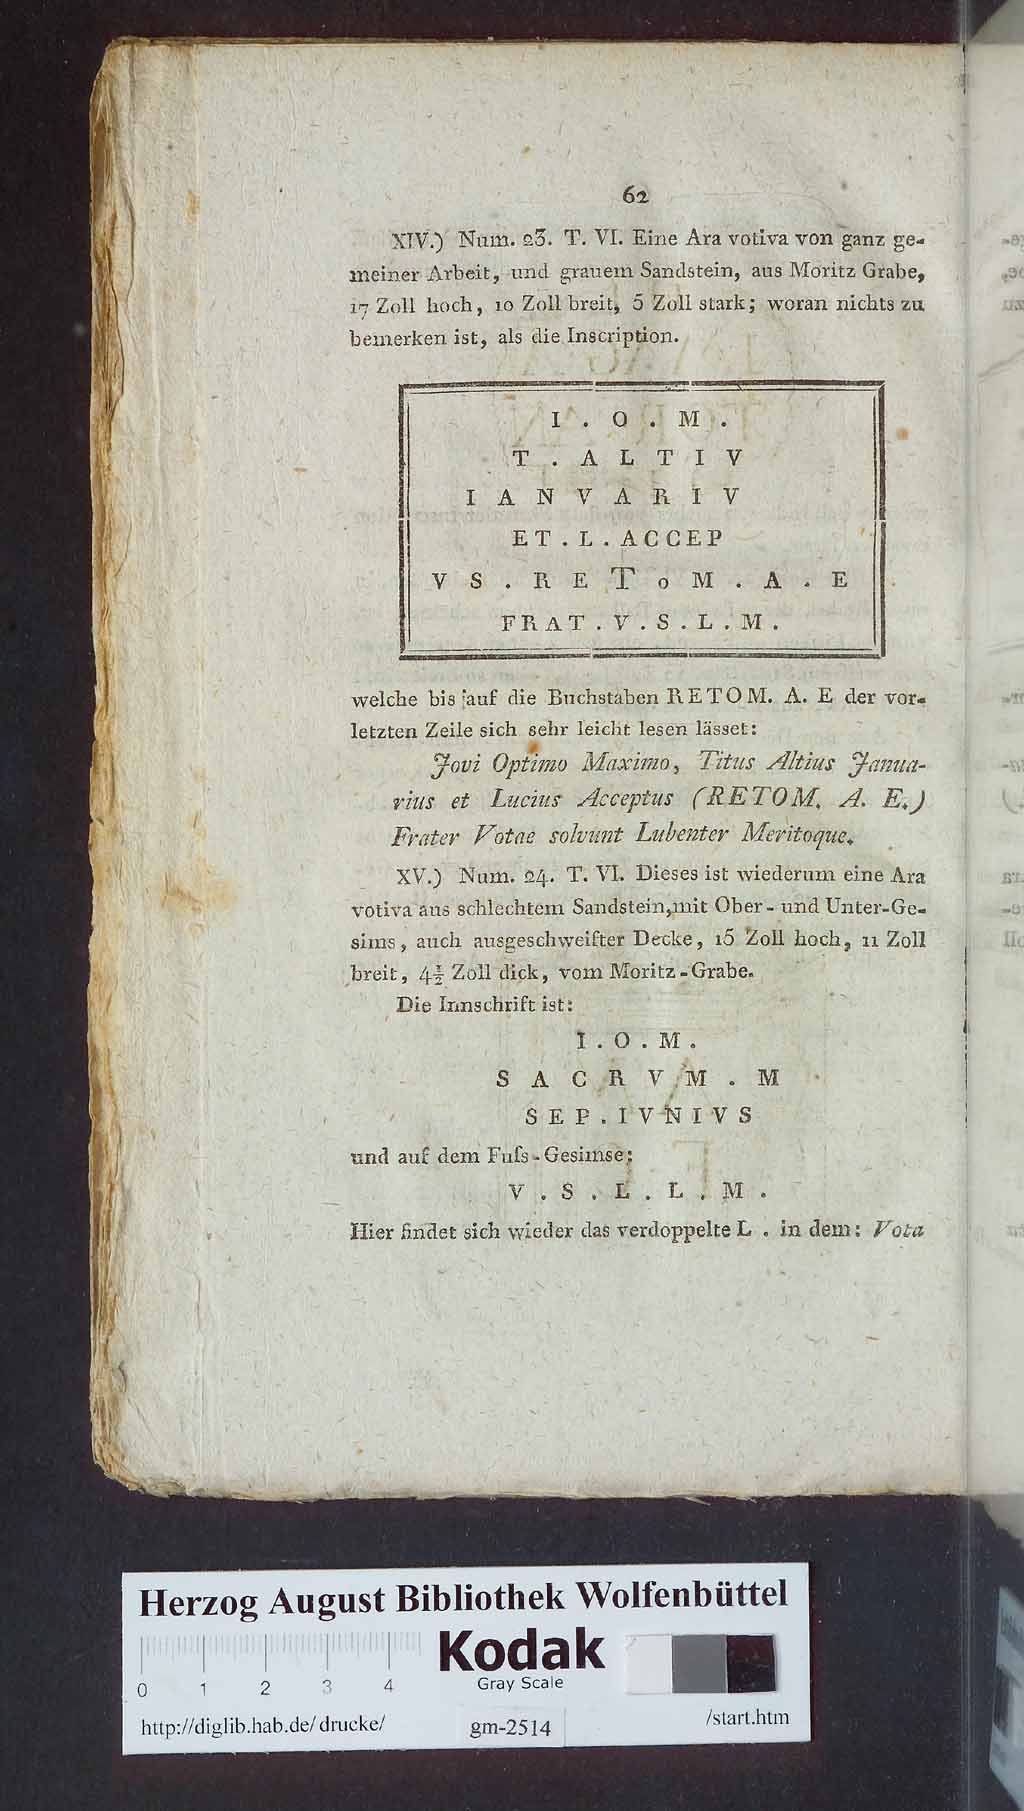 62
XIV.) Num. 23. T. VI. Eine Ara votiva von ganz ge-
meiner Arbeit, und grauem Sandstein, aus Moritz Grabe,
17 Zoll hoch, 10 Zoll breit, 5 Zoll stark; woran nichts zu
bemerken ist, als die Inscription.
I . O . M .
T . A L T I V
I A N V A R I V
ET . L . ACCEP
V S . R E T o M . A . E
FRAT . V . S . L . M .
welche bis auf die Buchstaben RETOM. A. E der vor-
letzten Zeile sich sehr leicht lesen lässet:
Jovi Optimo Maximo, Titus Altius Janua-
rius et Lucius Acceptus (RETOM. A. E.)
Frater Votae solvunt Lubenter Meritoque.
XV.) Num. 24. T. VI. Dieses ist wiederum eine Ara
votiva aus schlechtem Sandstein, mit Ober- und Unter-Ge-
sims, auch ausgeschweifter Decke, 15 Zoll hoch, 11 Zoll
breit, 4½ Zoll dick, vom Moritz-Grabe.
Die Innschrift ist:
I . O . M .
S A C R V M . M
SEP . IVNIVS
und auf dem Fuſs-Gesimse:
V . S . L . L . M .
Hier findet sich wieder das verdoppelte L . in dem: Vota
Herzog August Bibliothek Wolfenbüttel
Kodak
Gray Scale
0 1 2 3 4
http://diglib.hab.de/drucke/ gm-2514 /start.htm